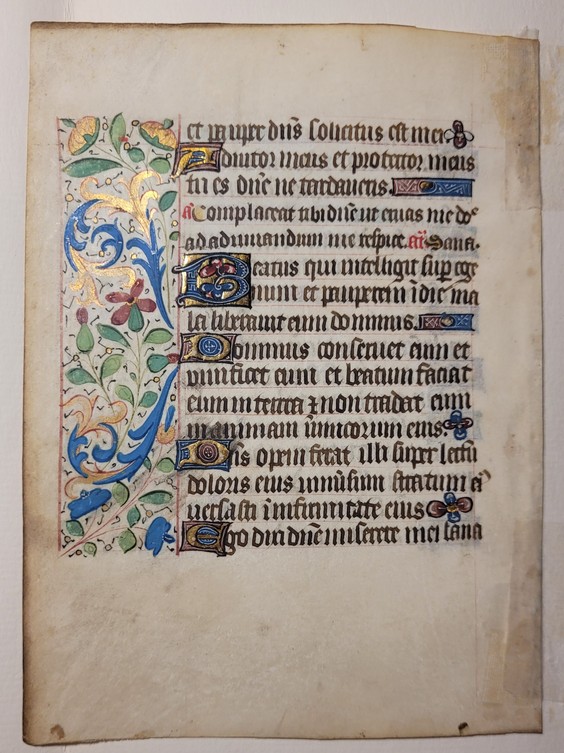 et pauper dns solicitus est mei
Adiutor meus et protector meus
tu es dne ne tardaueris.
a Complaceat tibi dne ut eruas me do
ad adiuuandum me respice. an Sana.
Beatus qui intelligit sup ege
num et pauperem i die ma
la liberauit eum dominus.
Dominus conseruet eum et
uiuificet eum et beatum faciat
eum in terra et non tradat eum
in animam inimicorum eius.
Dns opem ferat illi super lectu
doloris eius uniuersum stratum ei
uersasti i infirmitate eius
Ego dixi dne miserere mei sana